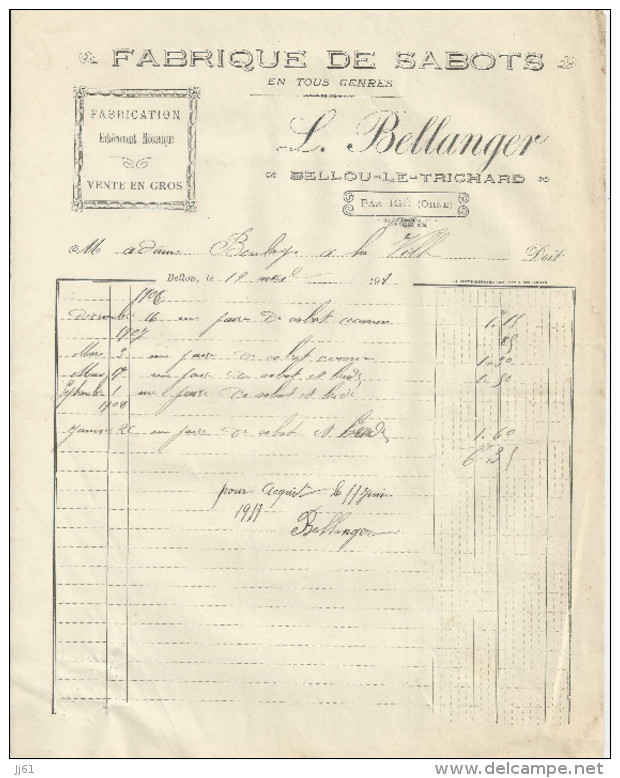 FABRIQUE DE SABOTS
EN TOUS GENRES
FABRICATION
Entièrement Mécanique
VENTE EN GROS
L. Bellanger
BELLOU-LE-TRICHARD
PAR IGÉ (ORNE)
Madame à la Doit
Bellou, le 19 191
1906
Décembre 16 une paire de sabot 1.15
1907 85
Mars 2 une paire de sabot
1.50
Mars 17 une paire de sabot et bride 1.50
Septembre 1 une paire de sabot et bride
1908
Janvier 26 une paire de sabot et bride 1.60
6.35
pour acquit le 11 juin
1911
Bellanger
jj61
delcampe.net